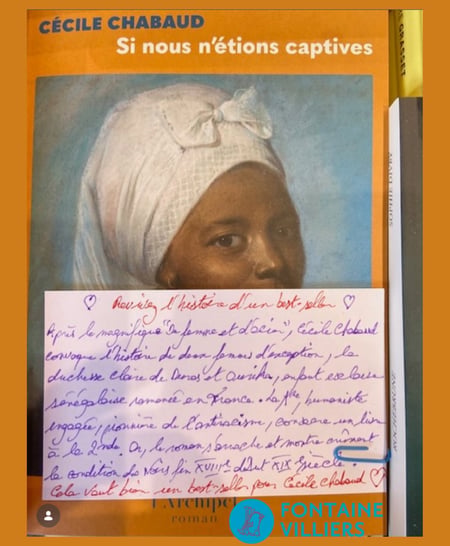 CÉCILE CHABAUD
Si nous n'étions captives
GRASSET
SOPHIE
ROCHEBRUNE
♡ Revivez l'histoire d'un best-seller ♡
Après le magnifique "De femme et d'acier", Cécile Chabaud
convoque l'histoire de deux femmes d'exception, la
duchesse Claire de Duras et Ourika, enfant esclave
sénégalaise ramenée en France. La 1ère, humaniste
engagée, pionnière de l'antiracisme, consacre un livre
à la 2nde. Or, le roman s'arrache et montre crûment
la condition des Noirs fin XVIIIe début XIXe siècle.
Cela vaut bien un best-seller pour Cécile Chabaud ♡
l'Archipel
roman
FONTAINE
VILLIERS